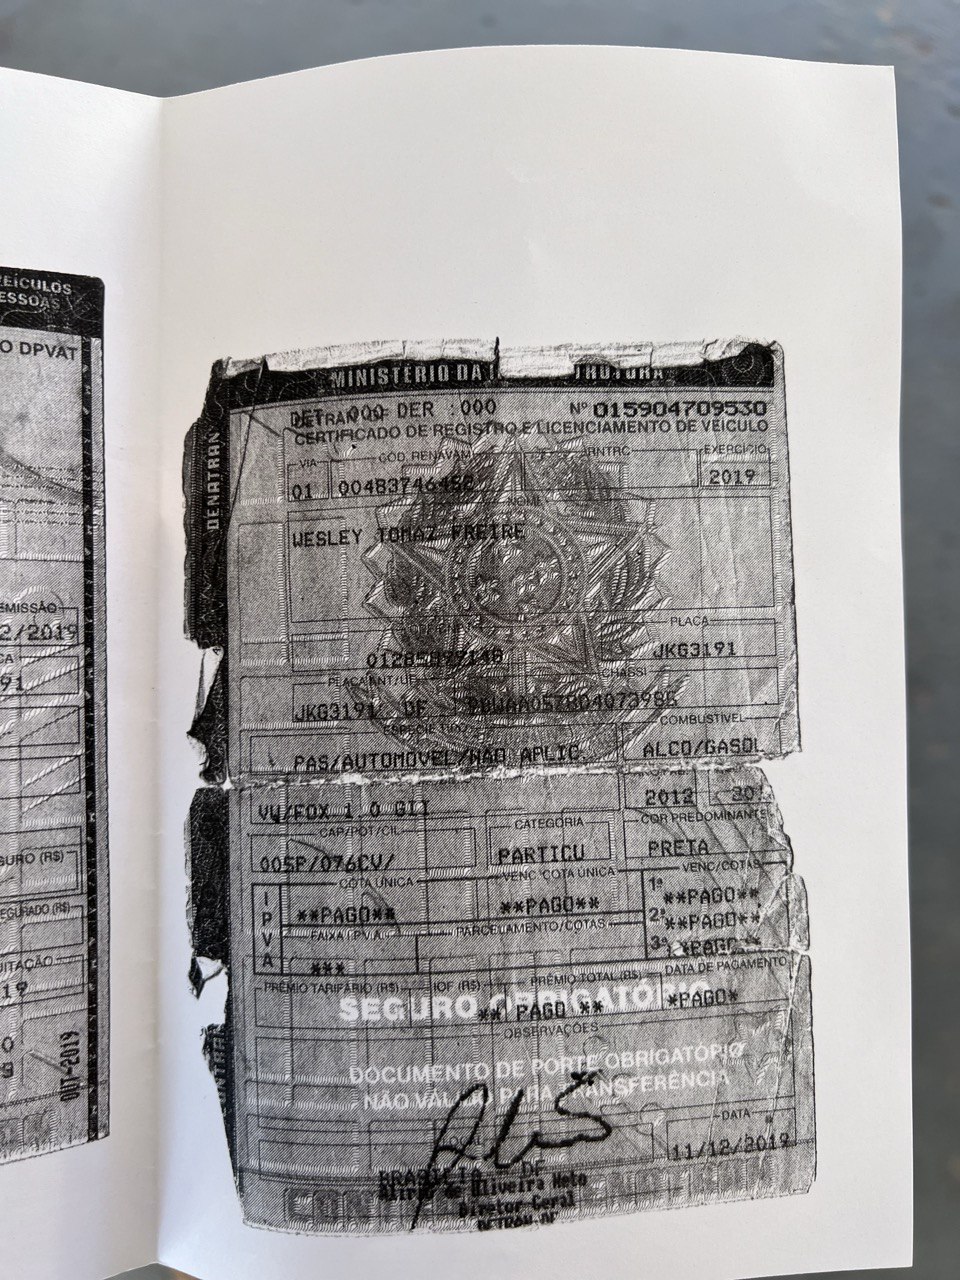 EÍCULOS
ESSOAS
O DPVAT
EMISSÃO
2/2019
CA
91
GURO (R$)
SEGURADO (R$)
ITAÇÃO
19
O
S
OUT-2019
MINISTÉRIO DA
DENATRAN
DETRAN 000 DER :000 Nº 015904709530
CERTIFICADO DE REGISTRO E LICENCIAMENTO DE VEÍCULO
VIA CÓD. RENAVAM RNTRC EXERCÍCIO
01 2019
NOME
WESLEY TOMAZ FREIRE
PLACA
JKG3191
PLACA ANT/UF CHASSI
JKG3191 DF
ESPÉCIE TIPO COMBUSTÍVEL
PAS/AUTOMOVEL/NAO APLIC. ALCO/GASOL
VW/FOX 1.0 GII 2012
CAP/POT/CIL CATEGORIA COR PREDOMINANTE
005P/076CV/ PARTICU PRETA
COTA ÚNICA VENC COTA ÚNICA VENC/COTAS
IPVA **PAGO** **PAGO** 1ª **PAGO**
2ª **PAGO**
FAIXA I.P.V.A. PARCELAMENTO/COTAS 3ª **PAGO**
***
PRÊMIO TARIFÁRIO (R$) IOF (R$) PRÊMIO TOTAL (R$) DATA DE PAGAMENTO
SEGURO OBRIGATÓRIO
** PAGO ** *PAGO*
OBSERVAÇÕES
DOCUMENTO DE PORTE OBRIGATÓRIO
NÃO VÁLIDO PARA TRANSFERÊNCIA
LOCAL DATA
BRASILIA DF 11/12/2019
de Oliveira Neto
Diretor-Geral
DETRAN-DF
CONTRAN